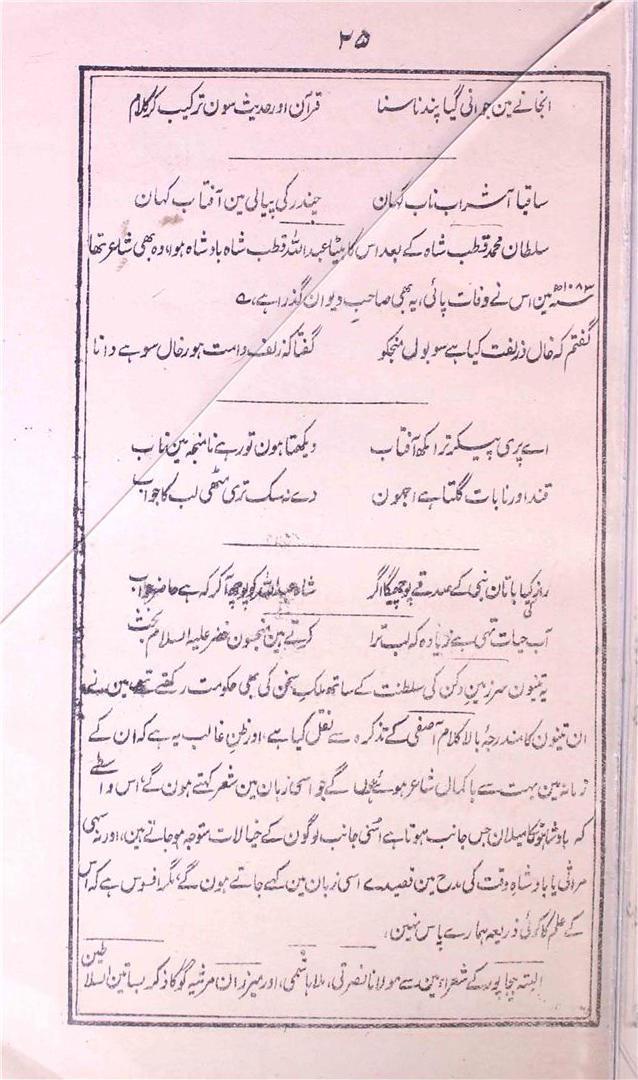 ۲۵
انجانے مین جوانی گیا پند نا سنا قرآن اور حدیث سون ترکیب کر کلام
ساقیا آ شراب ناب کہان چندر کی پیالی مین آفتاب کہان
سلطان محمد قطب شاہ کے بعد اس کا بیٹا عبداللہ قطب شاہ بادشاہ ہوا، وہ بھی شاعر تھا
۱۰۸۳ھ مین اس نے وفات پائی، یہ بھی صاحبِ دیوان گذرا ہے،
گفتم کہ خال ذرلفت کیا ہے سو بول منجکو گفتا کہ زلف دامت ہور خال سو ہے دانا
اے پری پیکر ترا مکھ آفتاب دیکھتا ہون تو رہے نا منجہ مین تاب
قند اور نابات گلتا ہے اجھون دے نہ سک تری مٹھی لب کا جواب
راز کیا باتان نبی کے صدقے پوچھیگا اگر شاہ عبداللہ کو پوچھ آ کر کہ ہے حاضر جواب
آب حیات تھی ہے زیادہ کہ لب ترا کرتے ہین منجسون خضر علیہ السلام بحث
یہ تینون سرزمین دکن کی سلطنت کے ساتھ ملک سخن کی بھی حکومت رکھتے تھے، مین نے
ان تینون کا مندرجۂ بالا کلام آصفی کے تذکرہ سے نقل کیا ہے، اور ظنِ غالب یہ ہے کہ ان کے
زمانہ مین بہت سے باکمال شاعر ہوئے ہون گے جو اسی زبان مین شعر کہتے ہون گے، اس واسطے
کہ بادشاہون کا میلان جس جانب ہوتا ہے اسی جانب لوگون کے خیالات متوجہ ہو جاتے ہین، اور نہ سہی
مراثی یا بادشاہِ وقت کی مدح مین قصیدے اسی زبان مین کہے جاتے ہون گے، مگر افسوس ہے کہ اس
کے علم کا کوئی ذریعہ ہمارے پاس نہین،
البتہ بیجاپور کے شعراء مین سے مولانا نصرتی، ملا ہاشمی، اور میرزان مرثیہ گو کا ذکر بساتین السلاطین